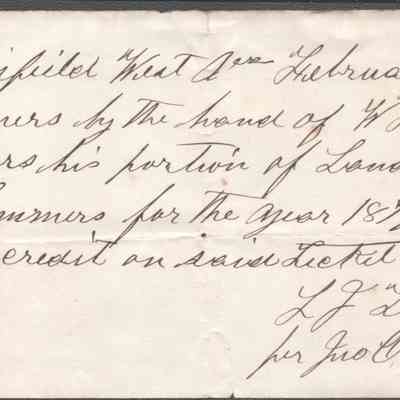 field West Vea Februa
ners by the hand of W
rs his portion of Land
ummers for the year 187
credit on said Ticket
L J
per Jno C